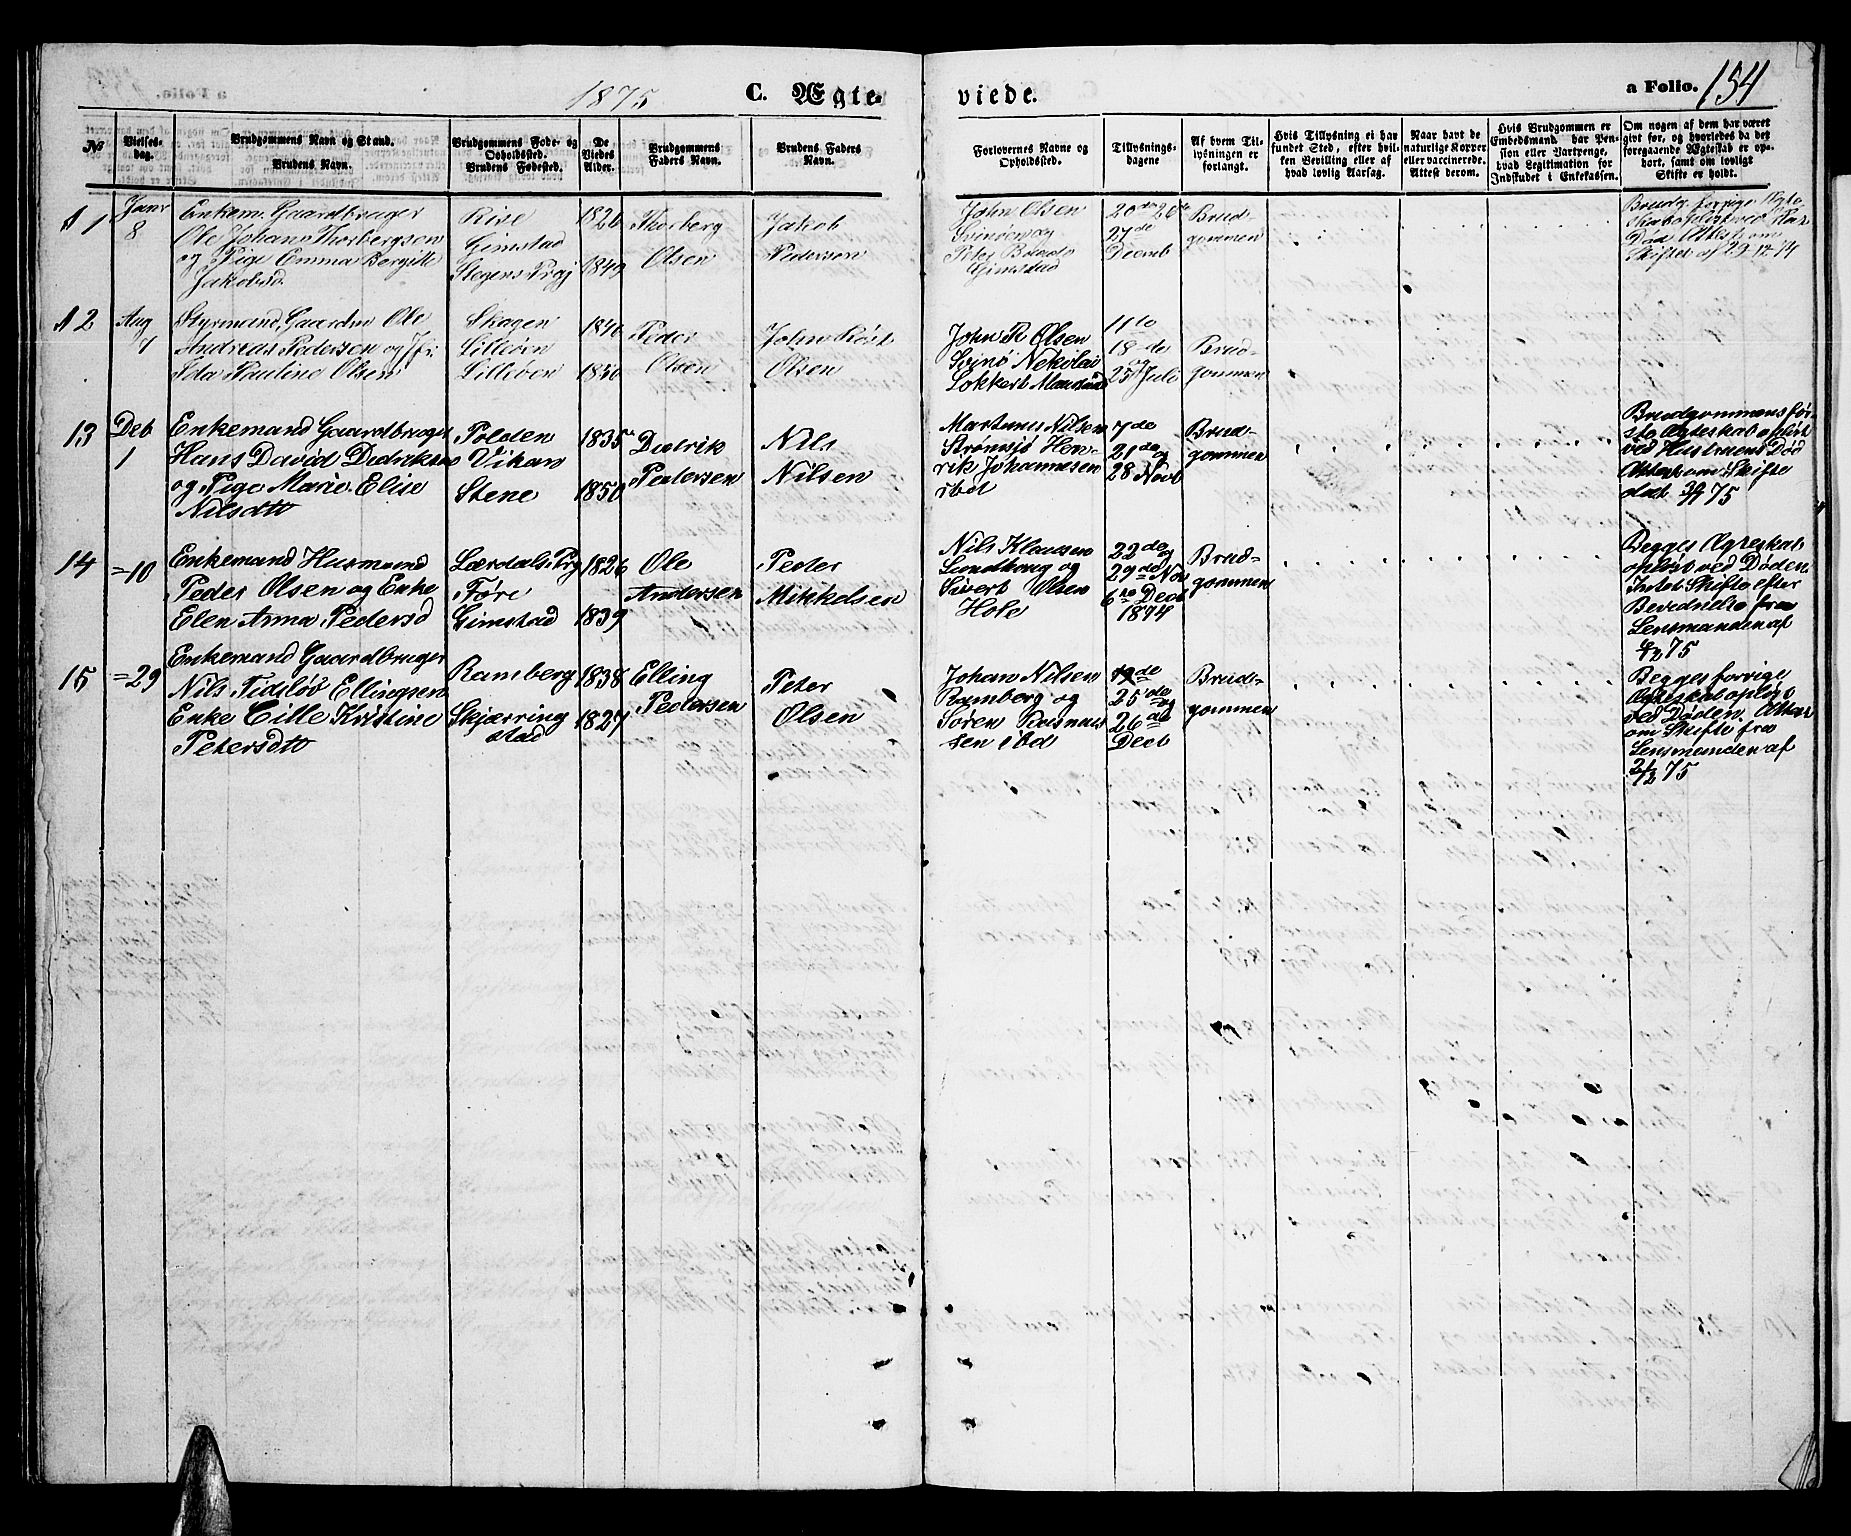 1875 C. Ægte-
viede.
a Folio. 154
№
Vielses-
dag.
Brudgommens Navn og Stand.
Brudens Navn.
Brudgommens Føde- og
Opholdssted.
Brudens Fødested.
De
Viedes
Alder.
Brudgommens
Faders Navn.
Brudens Faders
Navn.
Forlovernes Navne og
Opholdssted.
Tillysnings-
dagene
Af hvem Til-
lysningen er
forlangt.
Hvis Tillysning ei har
fundet Sted, efter hvil-
ken Bevilling eller af
hvad lovlig Aarsag.
Naar havt de
naturlige Kopper
eller vaccinerede.
Attest derom.
Hvis Brudgommen er
Embedsmand har Pen-
sion eller Vartpenge,
hvad Legitimation for
Indskudet i Enkekassen.
Om nogen af dem har været
gift før, og hvorledes da det
foregaaende Ægteskab er op-
hørt, samt om lovligt
Skifte er holdt.
11
Janr
8
Enkem. Gaardbruger
Ole Johans Thorbergsen
og Pige Emma Bergitte
Jakobsd.
Rise
Gimstad
Stegens Prgj
1826
1849
Thorberg
Olsen
Jakob
Pedersen
John Olsen
Svinøen og
Peter
Gimstad
20de 26de
27de
Decemb
Brud-
gommen
Brudg. forrige Ægte-
Død Attest om
Skiftet af 29-12-74
12
Aug
Styrmand, Gaardm Ole
Andreas Pedersen og Jfr.
Ida Pauline Olsen
Skagen
Lilleøen
Lilleøen
1846
1850
Peder
Olsen
John Røst
Olsen
John R Olsen
Svinø Nekolai
Lokkert
11te
18de
og
25 Juli
Brud-
gommen
13
Deb
1
Enkemand Gaardbruger
Hans David Didriksen
og Pige Marie Elise
Nilsdtr
Polden
Vikan
Stene
1835
1850
Didrik
Pedersen
Nils
Nilsen
Martinus Nilsen
Strømsjø Hen-
rik Johannesen
ibd
7de
21de og
28 Novb
Brud-
gommen
Brudgommens før-
ste Ægteskab opløst
ved Hustruens Død
Attest om Skifte
dat 30/11 75
14
=10
Enkemand Husmand
Peder Olsen og Enke
Elen Anna Pedersd
Lærdals Prg
Føre
Gimstad
1826
1839
Ole
Andersen
Peder
Mikkelsen
Nils Klausen
Lundbrug og
Sivert Olsen
Hole
22de og
29de Nov
6te Decb
1874
Brud-
gommen
Begges Ægteskab
opløst ved Døden
Intet Skifte efter
Bevidnelse fra
Lensmanden af
75
15
=29
Enkemand Gaardbruger
Nils Tidsløs Ellingsen
Enke Cille Kristine
Petersdtr
Ramberg
Skjærring
stad
1838
1827
Elling
Pedersen
Peter
Olsen
Johan Nilsen
Ramberg og
Søren Rasmus
sen ibd
19de
25de og
26de
Decb
Brud-
gommen
Begges forrige
Ægteskab opløst
ved Døden. Attest
om Skifte fra
Lensmanden af
75